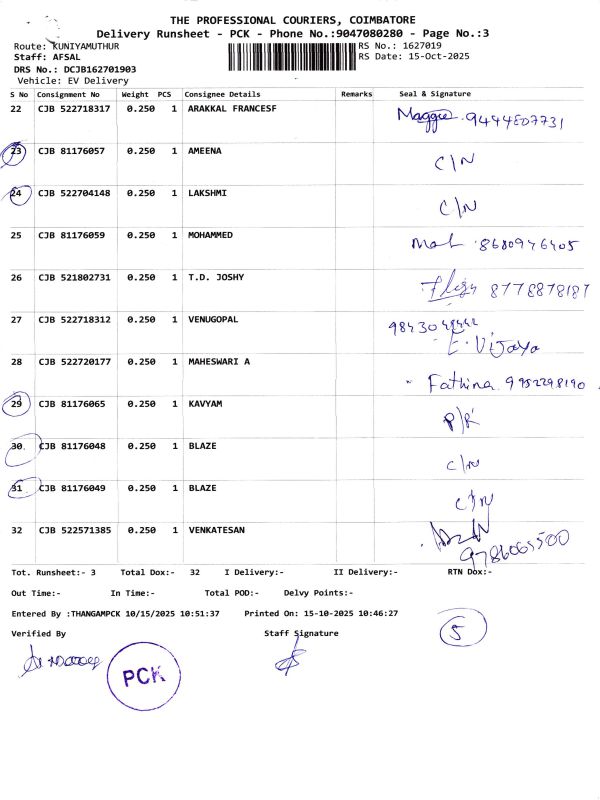 THE PROFESSIONAL COURIERS, COIMBATORE
Delivery Runsheet - PCK - Phone No.:9047080280 - Page No.:3
Route: KUNIYAMUTHUR RS No.: 1627019
Staff: AFSAL RS Date: 15-Oct-2025
DRS No.: DCJB162701903
Vehicle: EV Delivery
S No Consignment No Weight PCS Consignee Details Remarks Seal & Signature
22 CJB 522718317 0.250 1 ARAKKAL FRANCESF Maggie 9444807731
23 CJB 81176057 0.250 1 AMEENA C/N
24 CJB 522704148 0.250 1 LAKSHMI C/N
25 CJB 81176059 0.250 1 MOHAMMED 8680976405
26 CJB 521802731 0.250 1 T.D. JOSHY 8778878187
27 CJB 522718312 0.250 1 VENUGOPAL E. Vijaya
28 CJB 522720177 0.250 1 MAHESWARI A Fathina 9952298190
29 CJB 81176065 0.250 1 KAVYAM P/R
30 CJB 81176048 0.250 1 BLAZE C/N
31 CJB 81176049 0.250 1 BLAZE C/N
32 CJB 522571385 0.250 1 VENKATESAN 9786065500
Tot. Runsheet:- 3 Total Dox:- 32 I Delivery:- II Delivery:- RTN Dox:-
Out Time:- In Time:- Total POD:- Delvy Points:-
Entered By :THANGAMPCK 10/15/2025 10:51:37 Printed On: 15-10-2025 10:46:27
5
Verified By Staff Signature
PCK